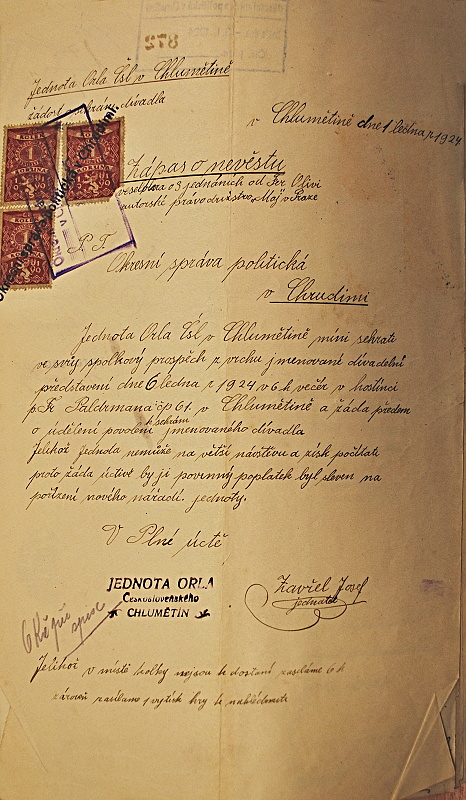 872
Jednota Orla Čsl v Chlumětíně
žádost o sehrání divadla
v Chlumětíně dne 1 ledna r 1924
KOLEK
KORUNA
Zápas o nevěstu
veselohra o 3 jednáních od Fr Olivi
autorské právo družstvo Máj v Praze
P. T.
Okresní správa politická
v Chrudimi
Jednota Orla Čsl v Chlumětíně míní sehrati
ve svůj spolkový prospěch z vrchu jmenované divadelní
představení dne 6 ledna r 1924 v 6 h večer v hostinci
p Fr Paldrmana čp 61. v Chlumětíně a žádá předem
o udělení povolení k sehrání jmenovaného divadla
Jelikož jednota nemůže na větší návštěvu a zisk počítati
proto žádá úctivě by jí povinný poplatek byl sleven na
pořízení nového nářadí. jednoty.
V Plné úctě
JEDNOTA ORLA
Československého
CHLUMĚTÍN
Zavřel Josef
jednatel
6 Kč
Jelikož v místě kolky nejsou k dostání zasíláme 6 k
zároveň zasíláme 1 výtisk hry k nahlédnutí